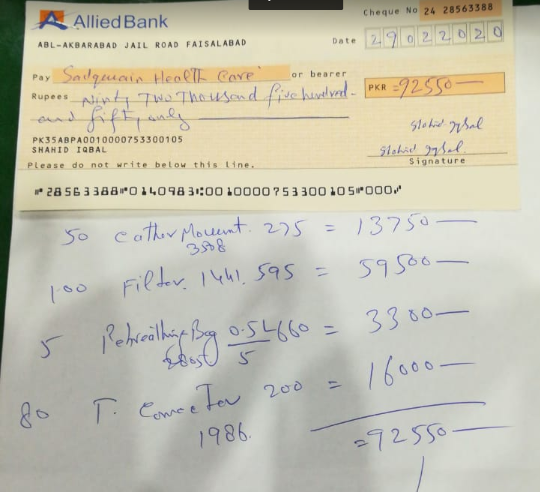 Allied Bank
Cheque No 24 28563388
ABL-AKBARABAD JAIL ROAD FAISALABAD
Date 29022020
Pay Sadquain Health Care or bearer
Rupees Ninty Two Thousand five hundred
and fifty only
PKR =92550
PK35ABPA0010000753300105
SHAHID IQBAL
Shahid Iqbal
Shahid Iqbal
Signature
Please do not write below this line.
28563388 0140983 0010000753300105 000
50 Cather Mount 275 = 13750
3508
100 Filter 1441. 595 = 59500
5 Rebreathing Bag 0.5L 660 = 3300
5
80 T. Connector 200 = 16000
1986.
=92550